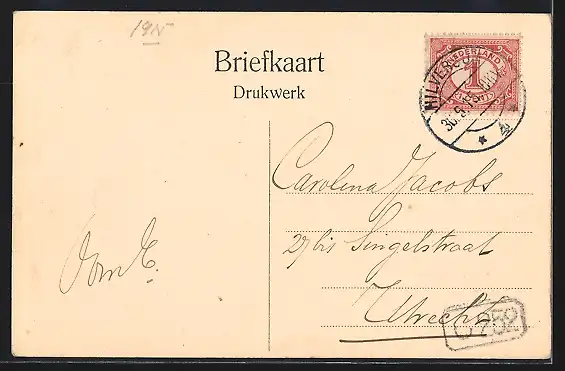 Briefkaart
Drukwerk
NEDERLAND
1
HILVERSUM
Carolina Jacobs
27 bis Singelstraat
Utrecht
252